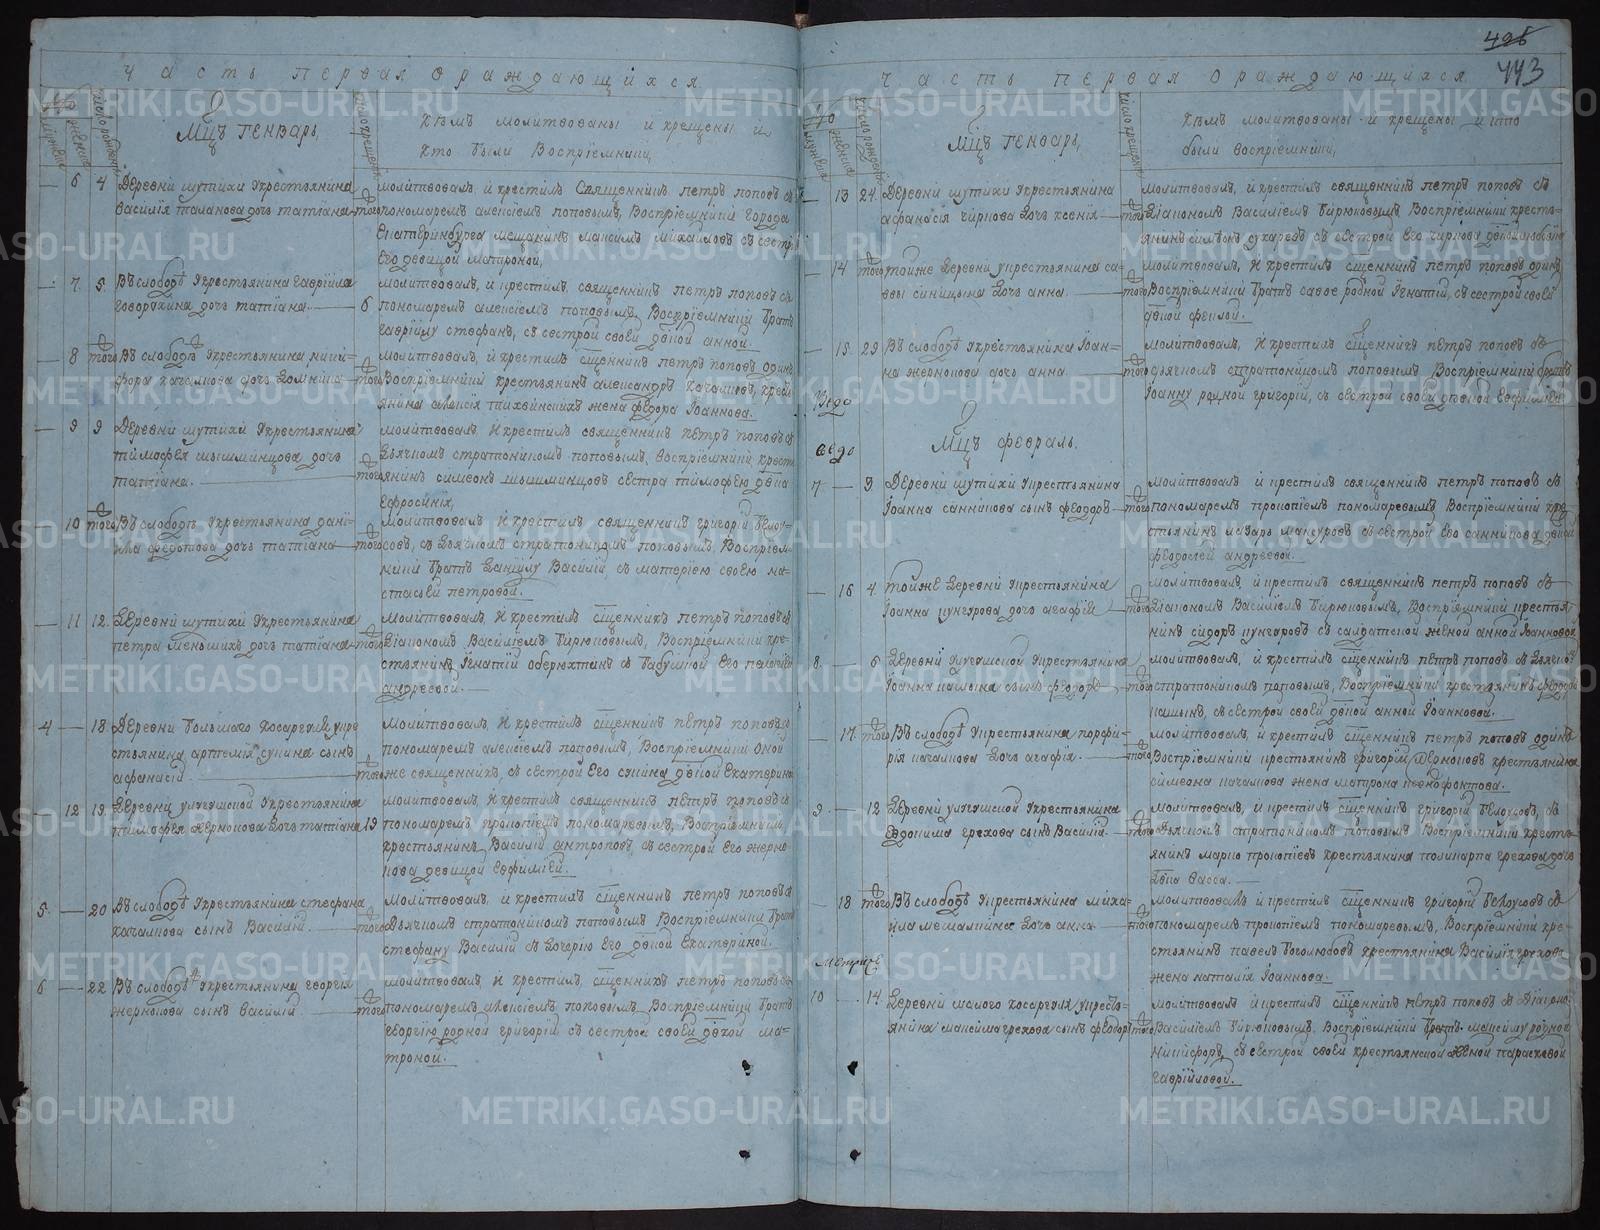 Часть первая о раждающихся
Мцъ Генварь,
кѣмъ молитвованы и крещены и
кто были Воспрїемники,
6 4 Деревни шутихи Укрестьянина
Василїя таланова дочь татїана
того
молитвовалъ и крестилъ Священникъ петръ поповъ съ
пономаремъ алексїемъ поповымъ, Воспрїемники города
Екатеринбурга мещанинъ максимъ михайловъ съ сестрой
Его девицой матроной,
7 5 Въ слободѣ Укрестьянина гаврїила
говорухина дочь татїана
6
молитвовалъ, и крестилъ священникъ петръ поповъ съ
пономаремъ алексїемъ поповымъ, Воспрїемники братъ
гаврїилу стефанъ, съ сестрой своей дѣвкой анной.
8 того Въ слободѣ Укрестьянина ники-
фора качалкова дочь домника
того
молитвовалъ, и крестилъ сщенникъ петръ поповъ одинъ
Воспрїемники крестьянинъ александръ качалковъ, кресть
янина алексїя тихвинскихъ жена федора їоаннова.
9 9 Деревни шутихи Укрестьянина
тимофея мышминцова дочь
татїана.
того
молитвовалъ, и крестилъ священникъ петръ поповъ съ
дьячкомъ стратоникомъ поповымъ, воспрїемники кресть
янинъ симеонъ мышминцовъ сестра тимофею дѣвка
ефросинїя,
10 того Въ слободѣ Укрестьянина дани-
ила федотова дочь татїана
того
молитвовалъ, и крестилъ, священникъ григорїй белоу-
совъ, съ дьячкомъ стратоникомъ поповымъ, Воспрїем-
ники братъ данїилу Василїй съ матерїею своею на-
стасьей петровой.
11 12. Деревни шутихи Укрестьянина
петра меньшихъ дочь татїана
того
молитвовалъ, и крестилъ сщенникъ петръ поповъ съ
дїакономъ Василїемъ бирюковымъ, Воспрїемники кре-
стьянинъ Игнатїй оберюхтинъ съ бабушкой Его пелагеей
андреевой.
4 18 Деревни большаго косаргуля укре
стьянина артемїя сунина сынъ
афанасїй
того
молитвовалъ, и крестилъ сщенникъ петръ поповъ съ
пономаремъ алексїемъ поповымъ, Воспрїемники оной
же священникъ, съ сестрой Его сунина дѣвкой Екатериной
12 19. Деревни улугушской Укрестьянина
тимофея жернокова дочь татїана 19
молитвовалъ, и крестилъ священникъ петръ поповъ съ
пономаремъ прокопїемъ пономаревымъ, Воспрїемники
крестьянинъ Василїй антроповъ, съ сестрой Его жерно-
кова девицой евфимїей.
5 20 Въ слободѣ Укрестьянина стефана
качалкова сынъ Василїй
того
молитвовалъ, и крестилъ сщенникъ петръ поповъ съ
дьячкомъ стратоникомъ поповымъ Воспрїемники братъ
стефану Василїй съ дочерїю Его дѣвкой Екатериной.
6 22 Въ слободѣ Укрестьянина георгїя
жернокова сынъ василїй
того
молитвовалъ, и крестилъ, сщенникъ петръ поповъ съ
пономаремъ алексїемъ поповымъ Воспрїемники братъ
георгїю родной григорїй съ сестрой своей дѣвкой ма-
троной.
426
443
Часть первая о раждающихся
Мцъ Генварь,
кѣмъ молитвованы и крещены и кто
были воспрїемники,
13 24 Деревни шутихи Укрестьянина
афанасїя чиркова дочь ксенїя
того
молитвовалъ, и крестилъ священникъ петръ поповъ съ
дїакономъ Василїемъ бирюковымъ, Воспрїемники кресть-
янинъ симеонъ духаревъ съ сестрой Его чиркова дѣвкой любовїю
14 того тойже Деревни укрестьянина са-
ввы синицына дочь анна
того
молитвовалъ, и крестилъ сщенникъ петръ поповъ одинъ
Воспрїемники братъ савве родной Игнатїй, съ сестрой своей
дѣвкой феклой.
15 29 Въ слободѣ Укрестьянина їоан-
на жернокова дочь анна
того
молитвовалъ, и крестилъ сщенникъ петръ поповъ съ
дьячкомъ стратоникомъ поповымъ Воспрїемники братъ
їоанну родной григорїй, съ сестрой своей дѣвкой евфимїей
Мцъ февраль.
7 3 Деревни шутихи Укрестьянина
їоанна санникова сынъ феодоръ
того
молитвовалъ и крестилъ священникъ петръ поповъ съ
пономаремъ прокопїемъ пономаревымъ Воспрїемники кре
стьянинъ лазарь мансуровъ съ сестрой его санникова дѣвкой
феодосїей андреевой.
16 4 тойже Деревни Укрестьянина
їоанна кунгурова дочь агафїя
того
молитвовалъ, и крестилъ священникъ петръ поповъ съ
дїакономъ Василїемъ бирюковымъ, Воспрїемники крестья
нинъ сидоръ кунгуровъ съ салдатской женой анной їоанновой
8 6 Деревни улугушской Укрестьянина
їоанна сынъ феодоръ
того
молитвовалъ, и крестилъ сщенникъ петръ поповъ съ дьячко
стратоникомъ поповымъ, Воспрїемники крестьянинъ феодоръ
съ сестрой своей дѣвкой анной їоанновой.
17 того Въ слободѣ Укрестьянина порфи-
рїя качалкова дочь агафїя
того
молитвовалъ, и крестилъ сщенникъ петръ поповъ одинъ
Воспрїемники крестьянинъ григорїй жерноковъ крестьянина
симеона качалкова жена матрона неофиктова.
9 12 Деревни улугушской Укрестьянина
евдокима грехова сынъ Василїй
того
молитвовалъ, и крестилъ сщенникъ григорїй белоусовъ, съ
дьячкомъ стратоникомъ поповымъ Воспрїемники кресть-
янинъ марко прокопїевъ крестьянина поликарпа грехова дочь
дѣвка васса.
18 того Въ слободѣ Укрестьянина миха-
ила мешалкина дочь анна
того
молитвовалъ и крестилъ сщенникъ григорїй белоусовъ съ
пономаремъ прокопїемъ пономаревымъ, Воспрїемники кре-
стьянинъ павелъ боголюбовъ крестьянина Василїя грехова
жена наталїя їоаннова.
10 14 Деревни малаго косаргуля укресть-
янина максима грехова сынъ феодоръ
того
молитвовалъ и крестилъ сщенникъ петръ поповъ съ дїакономъ
Василїемъ бирюковымъ Воспрїемники братъ максиму родной
никифоръ съ сестрой своей крестьянской женой параскевой
гаврїиловой.
METRIKI.GASO-URAL.RU